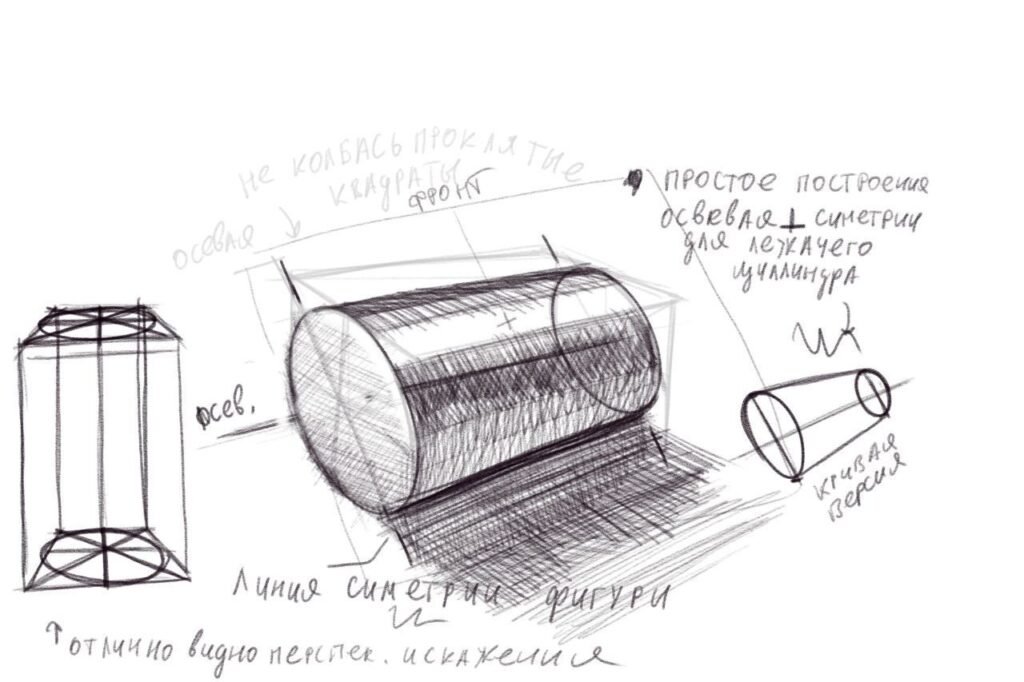 не колбась проклятые
квадраты
фронт
осевая
простое построение
осевевая ⊥ симетрии
для лежачего
цуллиндра
осев.
кривая
версия
линия симетрии фигуры
↑ отлично видно перспек. искажения